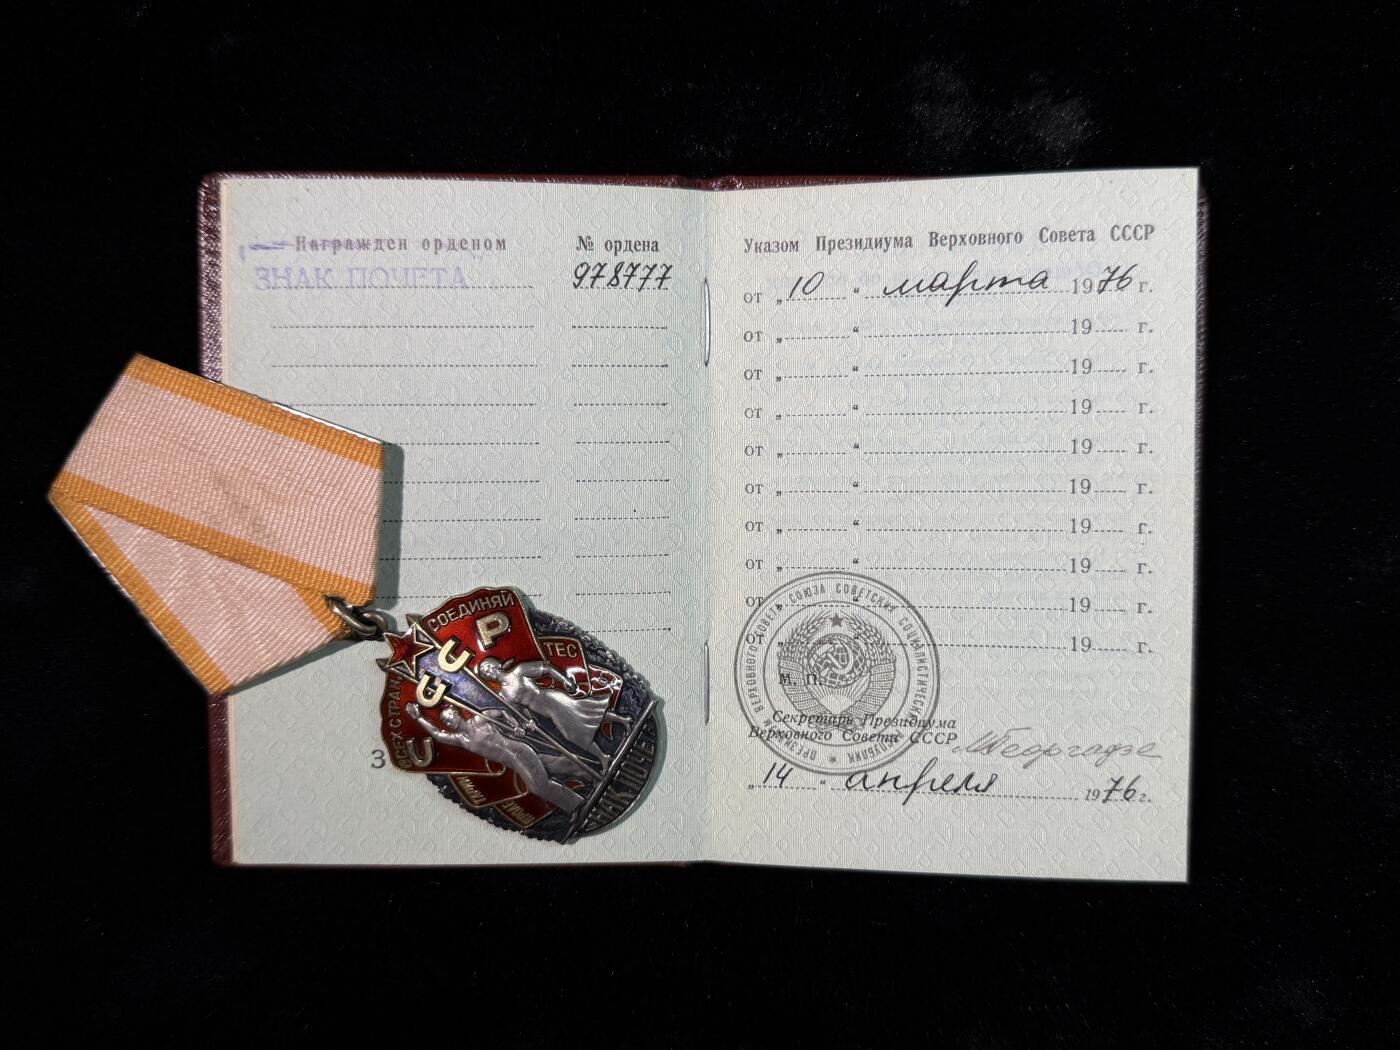 Награжден орденом
№ ордена
„ЗНАК ПОЧЕТА"
978777
Указом Президиума Верховного Совета СССР
от „10" марта 1976 г.
от „ " 19 г.
от „ " 19 г.
от „ " 19 г.
от „ " 19 г.
от „ " 19 г.
от „ " 19 г.
от „ " 19 г.
от „ " 19 г.
от „ " 19 г.
ПРЕЗИДИУМ ВЕРХОВНОГО СОВЕТА СОЮЗА СОВЕТСКИХ СОЦИАЛИСТИЧЕСКИХ РЕСПУБЛИК
М. П.
Секретарь Президиума
Верховного Совета СССР
М Георгадзе
„14" апреля 1976 г.
3
ВСЕХ СТРАН
СОЕДИНЯЙ
ТЕС
ПРОЛЕ
ТАРИИ
С С С Р
ЗНАК ПОЧЕТА